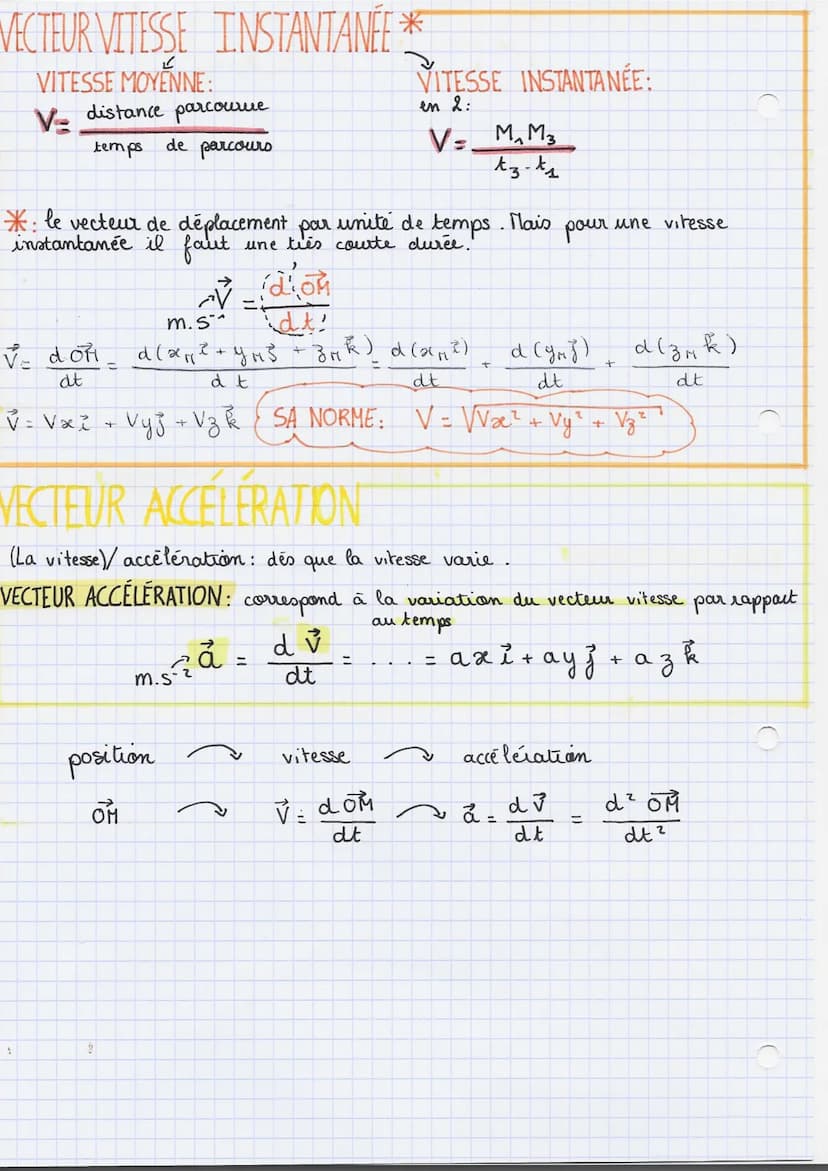 VECTEUR VITESSE INSTANTANÉE *
VITESSE MOYENNE:
V = distance parcourue / temps de parcours
VITESSE INSTANTANÉE:
en 2:
V = M₁M₃ / t₃ - t₁
*: le vecteur de déplacement par unité de temps. Mais pour une vitesse
instantanée il faut une très courte durée.
m.s⁻¹ V⃗ = d OM⃗ / dt
V⃗ = d OM⃗ / dt = d(x_M i⃗ + y_M j⃗ + z_M k⃗) / dt = d(x_M i⃗) / dt + d(y_M j⃗) / dt + d(z_M k⃗) / dt
V⃗ = Vx i⃗ + Vy j⃗ + Vz k⃗ SA NORME: V = √Vx² + Vy² + Vz²
VECTEUR ACCÉLÉRATION
(La vitesse)/accélération: dés que la vitesse varie.
VECTEUR ACCÉLÉRATION: correspond à la variation du vecteur vitesse par rapport
au temps
m.s⁻² a⃗ = d V⃗ / dt = .... = ax i⃗ + ay j⃗ + az k⃗
position → vitesse → accélération
OM⃗ → V⃗ = d OM⃗ / dt → a⃗ = d V⃗ / dt = d² OM⃗ / dt²